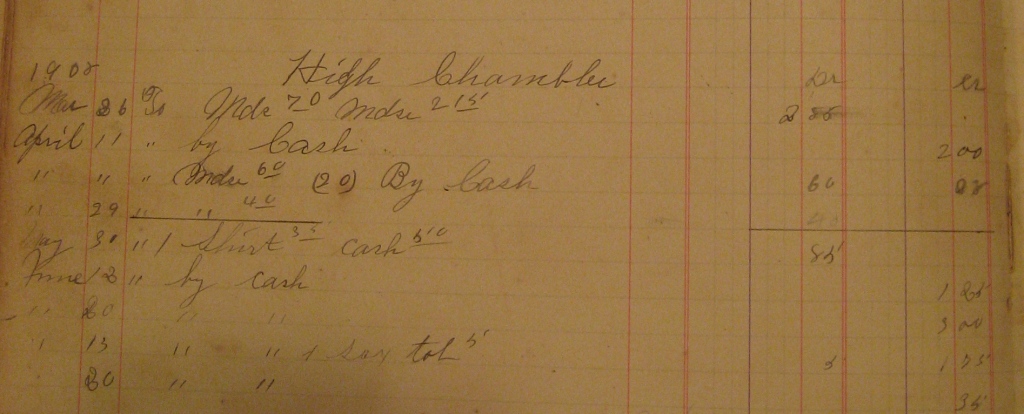 1908 High Chambler Dr cr
Mar 26 To Mdse 70 Mdse 215 2 85
April 11 " by Cash 2 00
" " " Mdse 60 (20) By Cash 60
" 29 " " 40 4
May 30 " 1 Shirt 35 cash 50 85
June 12 " by cash 1 25
" 20 " " 3 00
" 13 " " 1 tob 5 5 1 75
30 " " 35